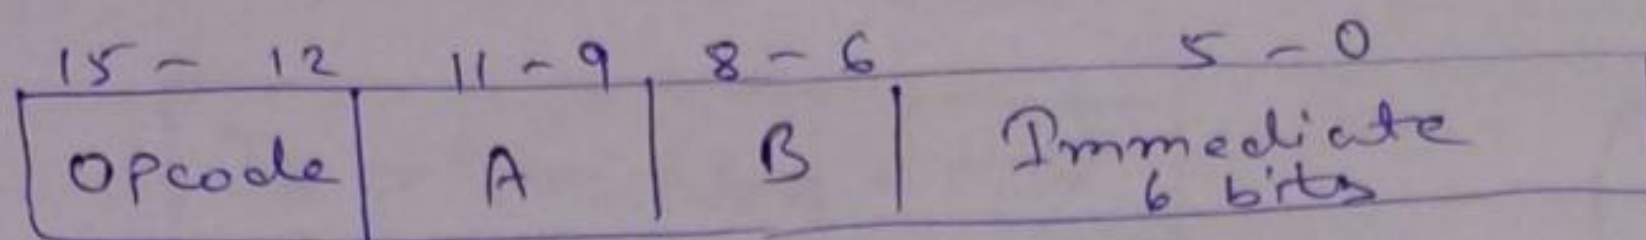 15 - 12 11 - 9 8 - 6 5 - 0
Opcode A B Immediate
6 bits